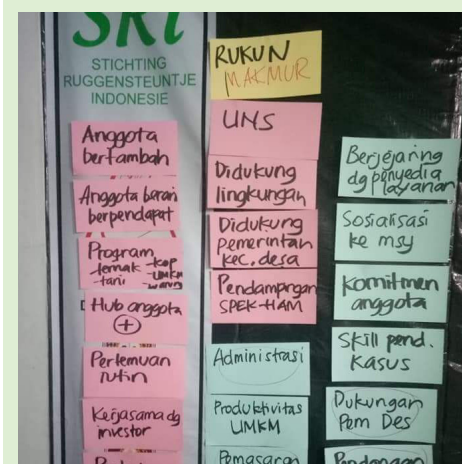 SRI
STICHTING
RUGGENSTEUNTJE
INDONESIE
Anggota
bertambah
Anggota berani
berpendapat
Program
-ternak -kop
-tani -UMKM
-warung
Hub anggota
+
Pertemuan
rutin
Kerjasama dg
investor
RUKUN
MAKMUR
UNS
Didukung
lingkungan
Didukung
pemerintah
kec, desa
Pendampingan
SPEK-HAM
Administrasi
Produktivitas
UMKM
Pemasaran
Berjejaring
dg penyedia
layanan
Sosialisasi
ke msy
Komitmen
anggota
Skill pend.
Kasus
Dukungan
Pem Des